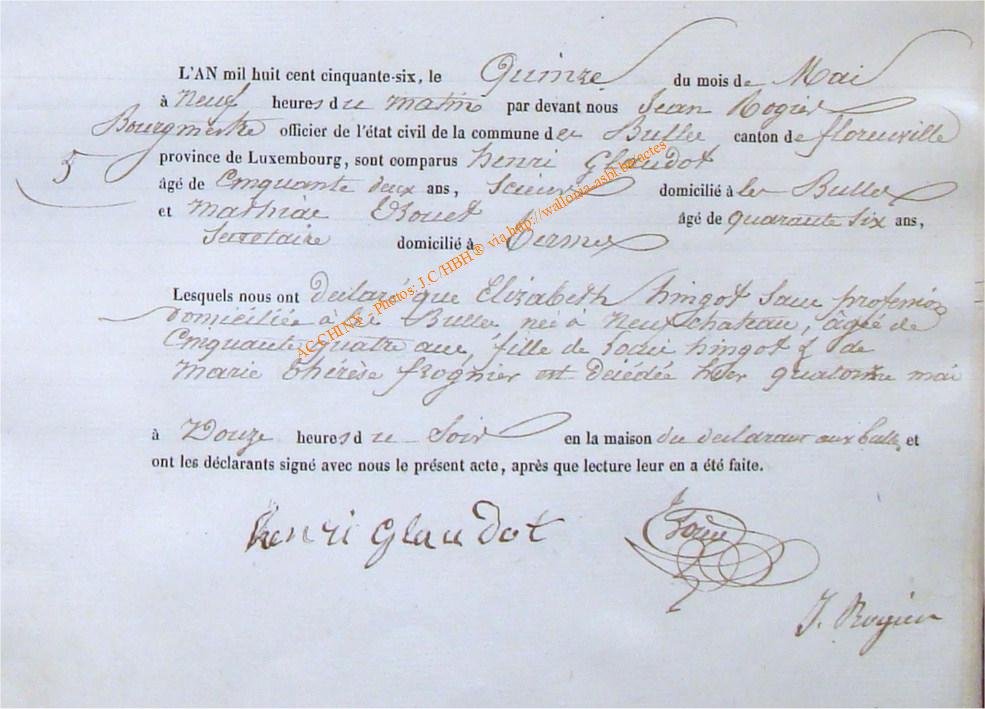 L'AN mil huit cent cinquante-six, le Quinze du mois de Mai
à Neuf heures du matin par devant nous Jean Rogier
Bourgmestre officier de l'état civil de la commune de Bulle canton de florenville
5
province de Luxembourg, sont comparus henri Glaudot
âgé de Cinquante deux ans, Scieur domicilié à les Bulles
et Mathiae âgé de quarante six ans,
Secrétaire domicilié à Termes
Lesquels nous ont declaré que Elizabeth hingot sans profession
domiciliée à les Bulles née à Neufchateau, âgée de
Cinquante quatre ans, fille de hingot & de
Marie thérèse frognier est décédée hier quatorze mai
à Douze heures du Soir en la maison du declarant aux bulles et
ont les déclarants signé avec nous le présent acte, après que lecture leur en a été faite.
henri Glaudot
J. Rogier
AC CHINY - Photos: J.C/HBH ® via http://wallonia-asbl.be/actes